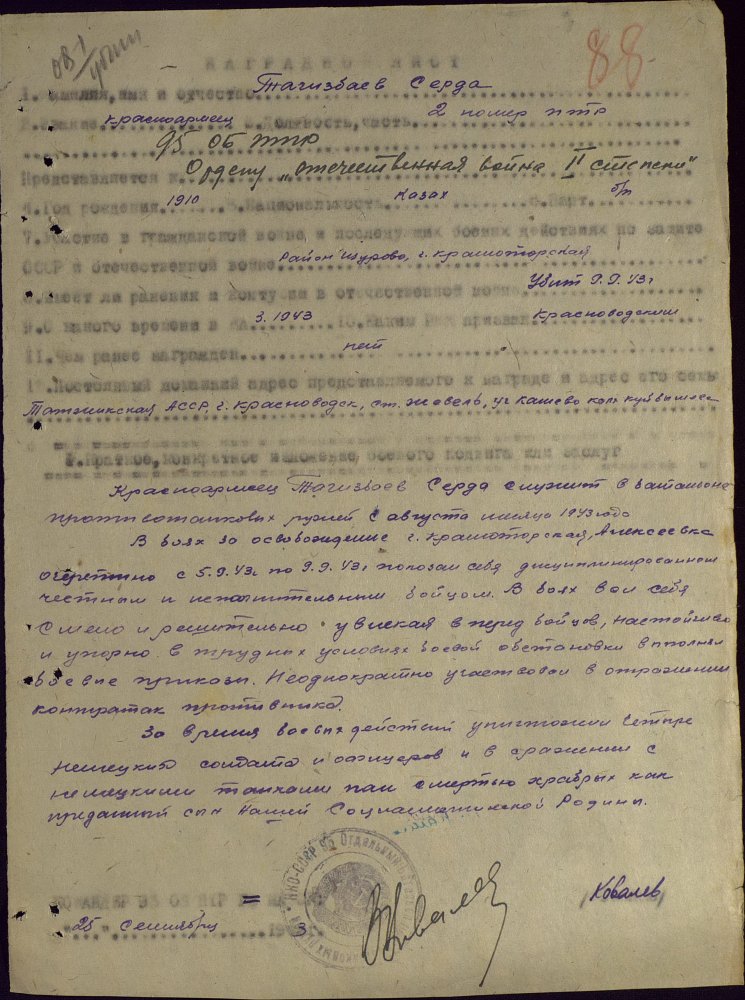 НАГРАДНОЙ ЛИСТ
88
1. Фамилия, имя и отчество Тагизбаев Серда
2. Звание красноармеец 3. Должность, часть 2 номер птр
95 ОБ птр
Представляется к Ордену „отечественная война II степени"
4. Год рождения 1910 5. Национальность Казах 6. Парт. б/п
7. Участие в гражданской войне и последующих боевых действиях по защите
СССР и отечественной войне район Щурово, г. Краматорская
8. Имеет ли ранения и контузии в отечественной войне Убит 9.9.43г
9. С какого времени в КА 3.1943 10. Каким РВК призван Красноводским
11. Чем ранее награжден нет
12. Постоянный домашний адрес представляемого к награде и адрес его семьи
АССР, г. Красноводск, ст.
1. Краткое, конкретное изложение, боевого подвига или заслуг
Красноармеец Тагизбаев Серда служит в батальоне
противотанковых ружей с августа месяца 1943 года
В боях за освобождение г. Краматорская, Алексеевка
с 5.9.43г по 9.9.43г показал себя дисциплинированным
честным и исполнительным бойцом. В боях вел себя
смело и решительно увлекая вперед бойцов, настойчиво
и упорно в трудных условиях боевой обстановки выполнял
боевые приказы. Неоднократно участвовал в отражении
контратак противника.
За время боевых действий уничтожил четыре
немецких солдата и офицеров и в сражении с
немецкими танками пал смертью храбрых как
преданный сын нашей Социалистической Родины.
НКО-СССР 95 Отдельный
КОМАНДИР 95 ОБ ПТР
Ковалев
"25" сентября 1943г.